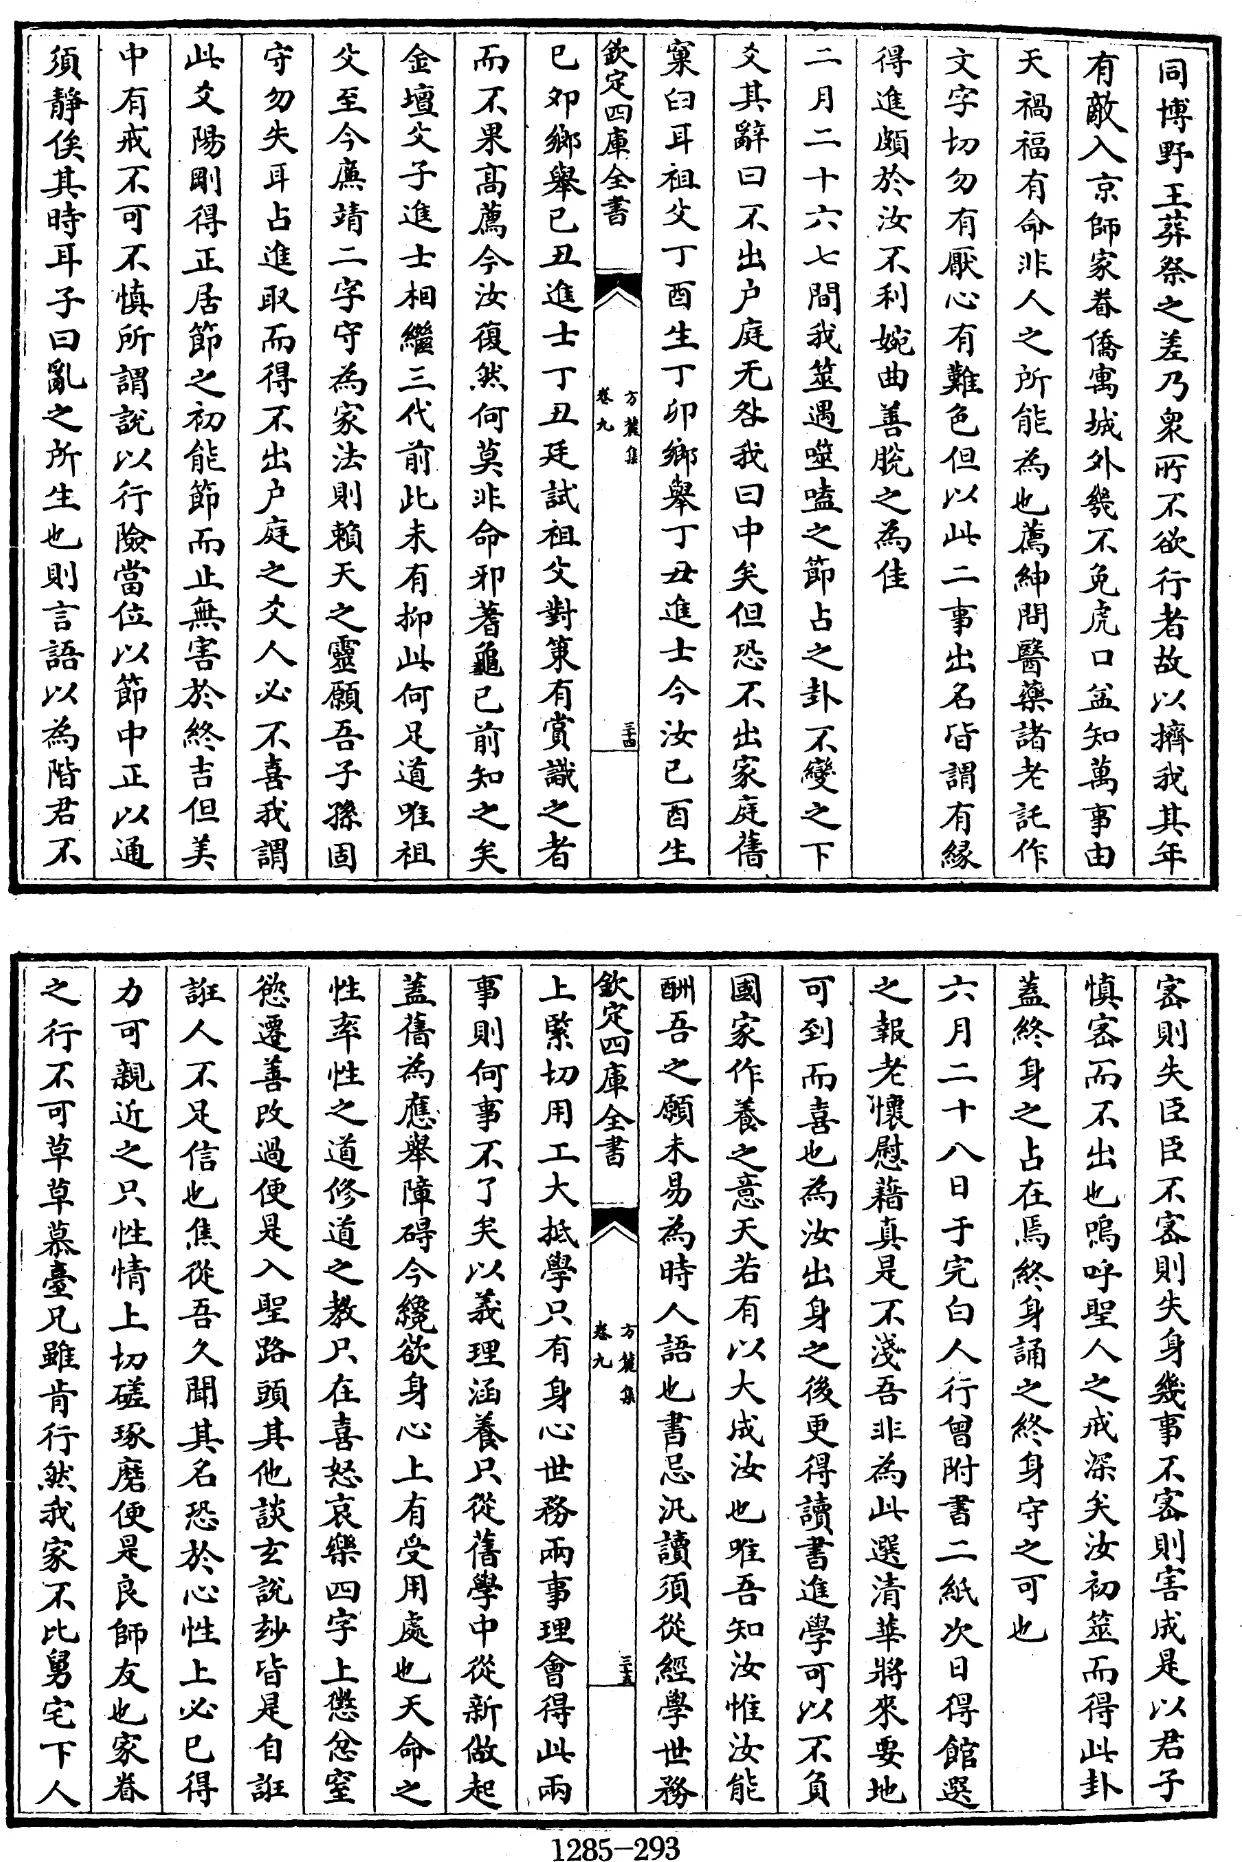 同博野王葬祭之差乃衆所不欲行者故以擠我其年
有敵入京師家眷僑寓城外幾不免虎口益知萬事由
天禍福有命非人之所能為也薦紳問醫藥諸老託作
文字切勿有厭心有難色但以此二事出名皆謂有縁
得進頗於汝不利婉曲善脫之為佳
二月二十六七間我筮遇噬嗑之節占之卦不變之下
爻其辭曰不出户庭无咎我曰中矣但恐不出家庭舊
窠臼耳祖父丁酉生丁卯鄉舉丁丑進士今汝已酉生
欽定四庫全書
方麓集
卷九
三十四
已夘鄉舉已丑進士丁丑廷試祖父對策有賞識之者
而不果髙薦今汝復然何莫非命邪蓍龜已前知之矣
金壇父子進士相繼三代前此未有抑此何足道唯祖
父至今廉靖二字守為家法則賴天之靈願吾子孫固
守勿失耳占進取而得不出户庭之爻人必不喜我謂
此爻陽剛得正居節之初能節而止無害於終吉但美
中有戒不可不慎所謂說以行險當位以節中正以通
須靜俟其時耳子曰亂之所生也則言語以為階君不
密則失臣臣不密則失身幾事不密則害成是以君子
慎密而不出也嗚呼聖人之戒深矣汝初筮而得此卦
蓋終身之占在焉終身誦之終身守之可也
六月二十八日于完白人行曾附書二紙次日得館選
之報老懷慰藉真是不淺吾非為此選清華將來要地
可到而喜也為汝出身之後更得讀書進學可以不負
國家作養之意天若有以大成汝也唯吾知汝惟汝能
酬吾之願未易為時人語也書忌汎讀須從經學世務
欽定四庫全書
方麓集
卷九
三十五
上緊切用工大抵學只有身心世務兩事理會得此兩
事則何事不了矣以義理涵養只從舊學中從新做起
蓋舊為應舉障碍今纔欲身心上有受用處也天命之
性率性之道修道之教只在喜怒哀樂四字上懲忿窒
慾遷善改過便是入聖路頭其他談玄說玅皆是自誑
誑人不足信也焦從吾久聞其名恐於心性上必已得
力可親近之只性情上切磋琢磨便是良師友也家眷
之行不可草草慕臺兄雖肯行然我家不比舅宅下人
1285-293